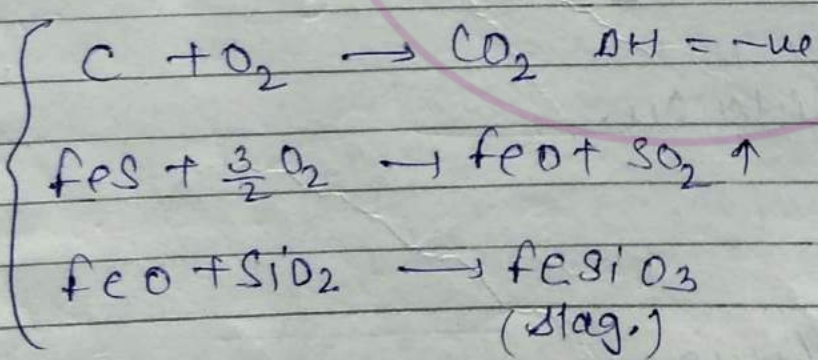 C + O₂ → CO₂ ΔH = -ve
feS + 3/2 O₂ → feO + SO₂ ↑
feO + SiO₂ → feSiO₃
(slag.)